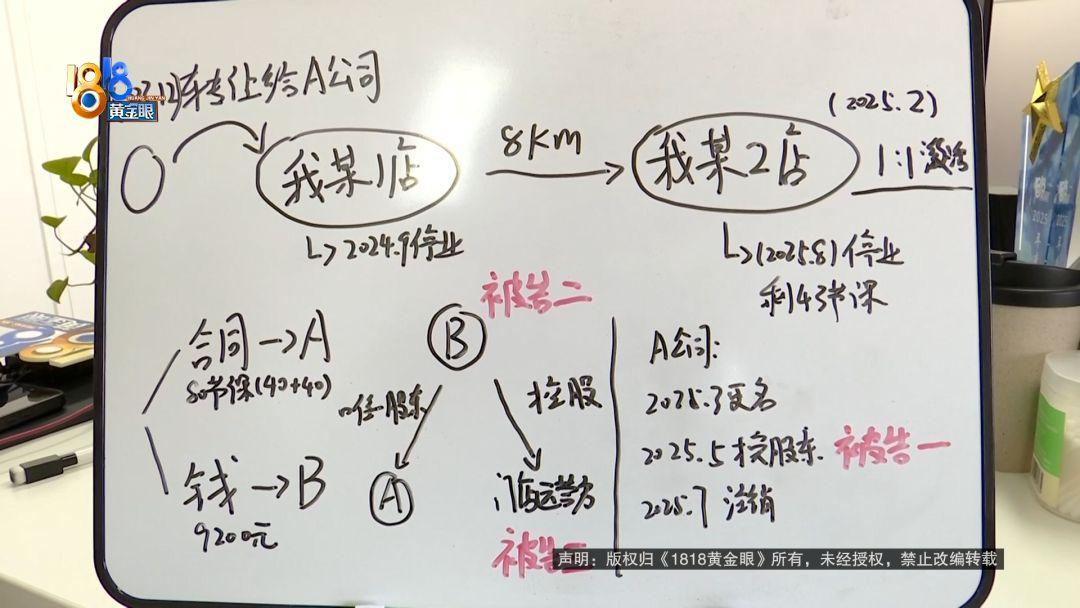 1818
黄金眼
HUANG JIN YAN
转让给A公司
我某1店
8KM
我某2店
(2025.2)
1:1激活
2024.9停业
(2025.8)停业
剩43节课
合同→A
80节课(40+40)
钱→B
9200元
被告二
B
股东
控股
A
门店运营方
被告三
A公司:
2025.3更名
2025.5换股东
被告一
2025.7注销
2025
声明：版权归《1818黄金眼》所有，未经授权，禁止改编转载